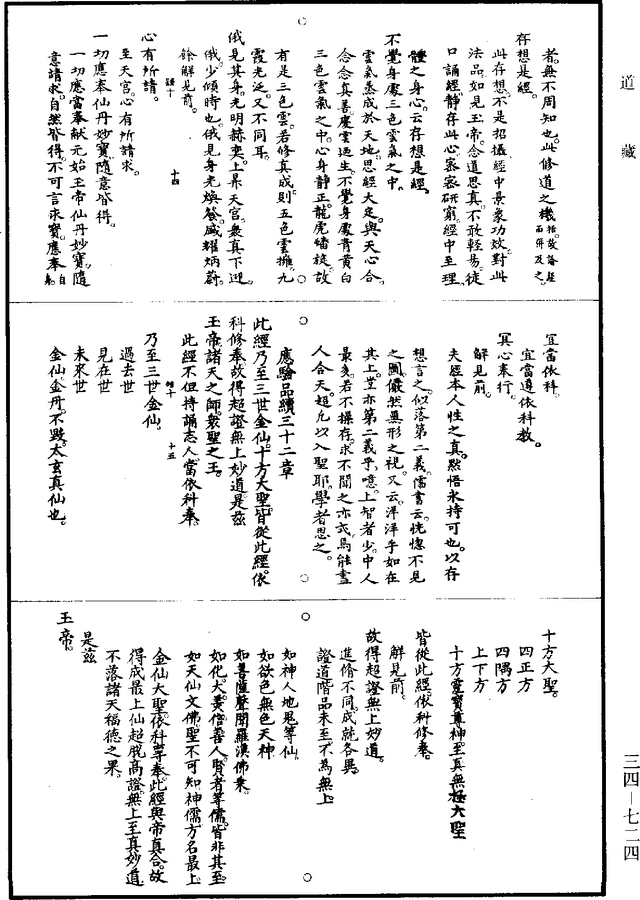 道藏
者。無不周知也。此修道之機括。故論經而併及之。
存想是經。
此存想。不是招攝經中景象功效。對此
法品。如見玉帝。念道思真。不敢輕易。徒
口誦經。靜存此心。審審研窮。經中至理。
體之身心。云存想是經。
不覺身處三色雲氣之中。
雲氣蒸成於天地。思經大定。與天心合。
念念真善。慶雲迺生。不覺身處青黃白
三色雲氣之中。心身靜正。龍虎繙旋。故
有是三色雲。若修真成。則五色雲擁。九
霞光泛。又不同耳。
俄見其身。光明赫奕。上昇天宮。衆真下迎。
俄。少頃時也。俄見身光煥發。盛耀炳蔚。
餘解見前。
十四
心有所請。
至天宮。心有所請求。
一切應奉仙丹妙寶。隨意皆得。
一切應當奉獻元始玉帝仙丹妙寶。隨
意請求。自然皆得。不可言求寶。應奉自
宜當依科。
宜當遵依科教。
冥心奉行。
解見前。
夫經本人性之真。默悟永持可也。以存
想言之。似落第二義。儒書云。恍惚不見
之圖。儼然無形之視。又云。洋洋乎如在
其上。豈亦第二義乎。噫。上智者少。中人
最多。若不操存。求不聞之亦式。焉能盡
人合天。超凡以入聖耶。學者思之。
應驗品續三十二章
此經乃至三世金仙。十方大聖。皆從此經。依
科修奉。故得超證無上妙道。是茲
玉帝諸天之師。衆聖之王。
此經不但持誦志人。當依科奉。
十五
乃至三世金仙。
過去世
見在世
未來世
金仙金丹。不毀。太玄真仙也。
十方大聖。
四正方
四隅方
上下方
十方靈寶尊神。至真無極大聖
皆從此經。依科修奉。
解見前。
故得超證無上妙道。
進脩不同。成就各異。
證道階品未至。不為無上
如神人地鬼等仙。
如欲色無色天神
如菩薩聲聞羅漢佛乘。
如化大美信善人。賢者等儒。皆非其至。
如天仙文佛聖不可知。神儒方名最上。
金仙大聖。依科尊奉。此經與帝真合。故
得成最上仙。超脫高證。無上至真妙道
不落諸天福德之果。
是茲
玉帝。
三四—七二四